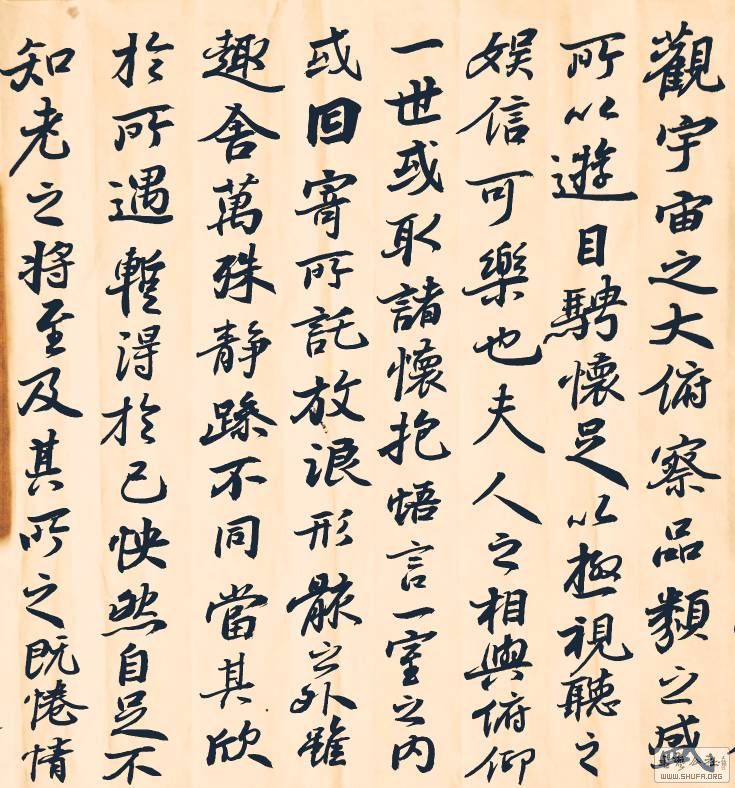 觀宇宙之大俯察品類之盛
所以遊目騁懷足以極視聽之
娛信可樂也夫人之相與俯仰
一世或取諸懷抱悟言一室之内
或因寄所託放浪形骸之外雖
趣舍萬殊静躁不同當其欣
於所遇暫得於己快然自足不
知老之將至及其所之既惓情
WWW.SHUFA.ORG